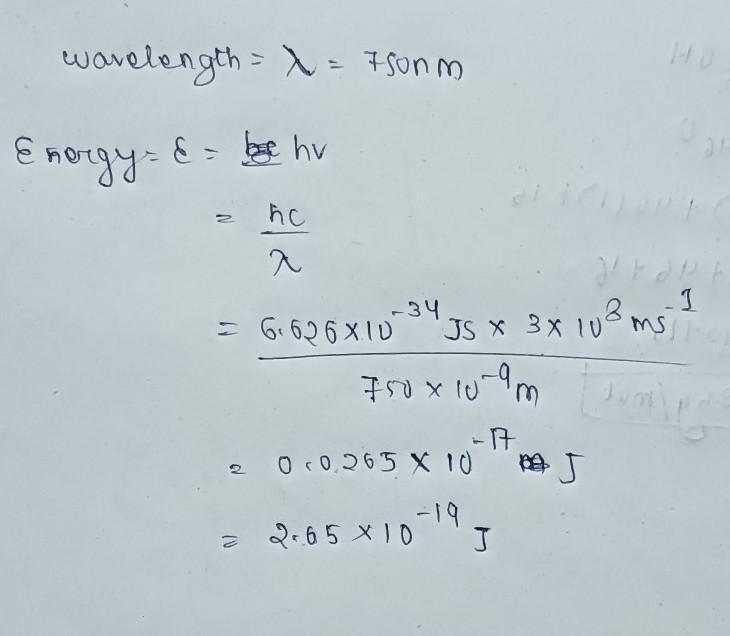 wavelength = λ = 750nm
Energy = E = hv
= hc
λ
= 6.626×10⁻³⁴ JS × 3×10⁸ ms⁻¹
750×10⁻⁹m
= 0.0265×10⁻¹⁷ J
= 2.65×10⁻¹⁹ J